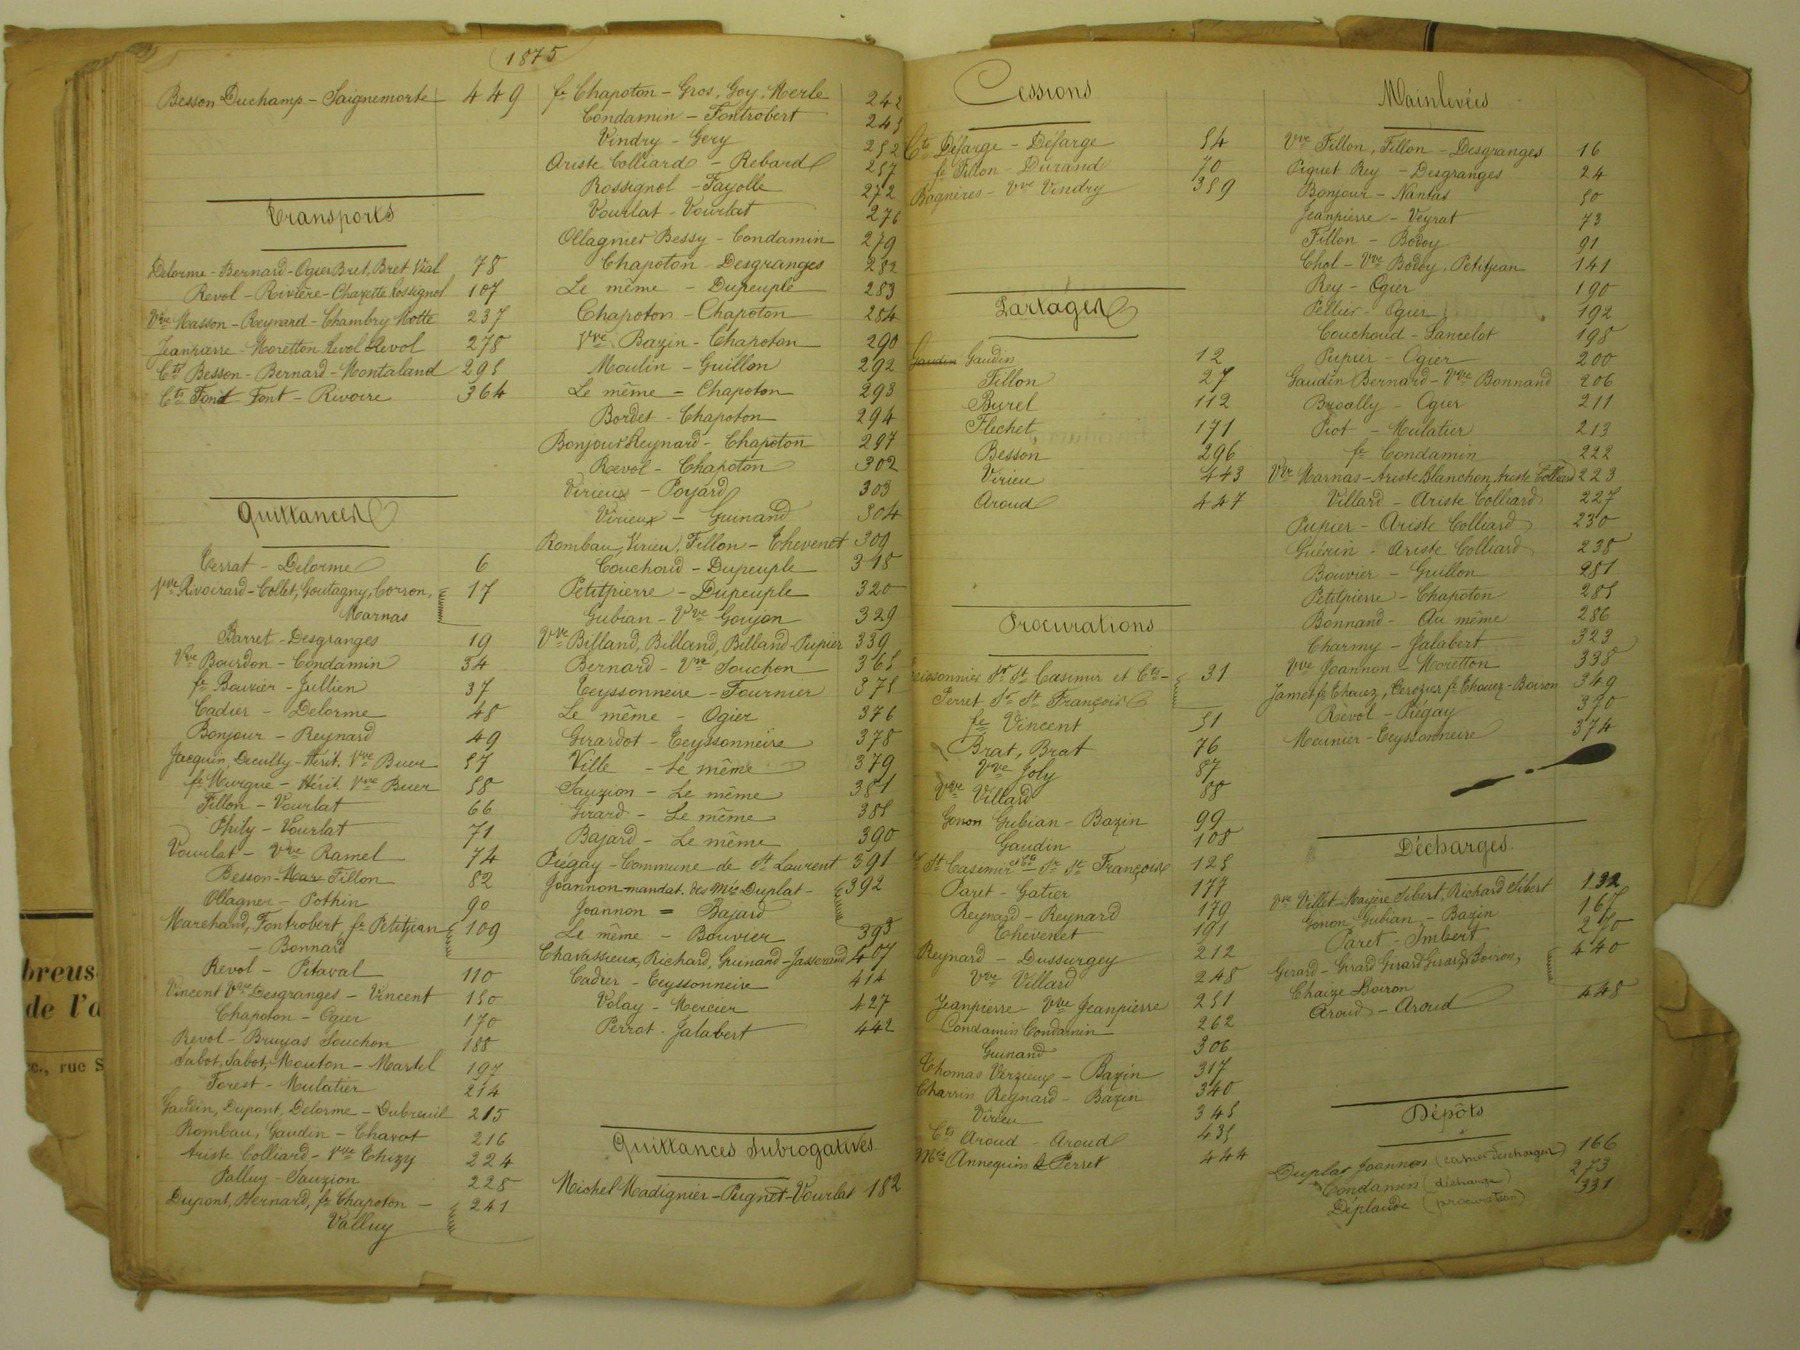 1875
Besson Duchamp - Saignemorte 449
Transports
Delorme - Bernard - Ogier Bret, Bret Vial 78
Revol - Rivière - Chazette Rossignol 107
Vve Masson - Reynard - Chambry Motte 237
Jeanpierre - Moretton Revol Revol 278
Cts Besson - Bernard - Montaland 295
Cts Font Font - Rivoire 364
Quittances
Terrat - Delorme 6
Vve Rivoirard - Collet, Goutagny, Corron, 17
Marnas
Barret - Desgranges 19
Vve Bourdon - Condamin 34
fe Bouvier - Jullien 37
Cadier - Delorme 48
Bonjour - Reynard 49
Jacquin, Deuilly - Hérit. Vve Buer 57
fe Murgue - Hérit. Vve Buer 58
Fillon - Vourlat 66
Phily - Vourlat 71
Vourlat - Vve Ramel 74
Besson - Fillon 82
Ollagner - Pothin 90
Marchand, Fontrobert, fe Petitjean 109
- Bonnard
Revol - Pitaval 110
Vincent Vve Desgranges - Vincent 150
Chapoton - Ogier 170
Revol - Bruyas Souchon 188
Sabot, Sabot, Mouton - Martel 197
Forest - Mulatier 214
Gaudin, Dupont, Delorme - Dubreuil 215
Rombau, Gaudin - Chavot 216
Ariste Colliard - Vve Thizy 224
Palluy - Sauzion 228
Dupont, Bernard, fe Chapoton - 241
Valluy
fe Chapoton - Gros, Goy, Merle 242
Condamin - Fontrobert 245
Vindry - Gery 252
Ariste Colliard - Rebard 257
Rossignol - Fayolle 272
Vourlat - Vourlat 276
Ollagnier Bessy - Condamin 279
Chapoton - Desgranges 282
Le même - Dupeuple 283
Chapoton - Chapoton 284
Vve Bazin - Chapoton 290
Moulin - Guillon 292
Le même - Chapoton 293
Bordet - Chapoton 294
Bonjour Reynard - Chapoton 297
Revol - Chapoton 302
Virieux - Poyard 303
Virieux - Guinand 304
Rombau, Virieu, Fillon - Thevenet 309
Couchoud - Dupeuple 318
Petitpierre - Dupeuple 320
Gubian - Vve Goujon 329
Vve Billand, Billand, Billand - Pupier 339
Bernard - Vve Souchon 365
Teyssonneire - Fournier 375
Le même - Ogier 376
Girardot - Teyssonneire 378
Ville - Le même 379
Sauzion - Le même 381
Girard - Le même 385
Bajard - Le même 390
Piégay - Commune de St Laurent 391
Joannon mandat. des Mis Duplat - 392
Joannon = Bajard
Le même - Bouvier 393
Chavassieux, Richard, Guinand - Jasserand 407
Cadier - Teyssonneire 414
Volay - Mercier 427
Perrot - Jalabert 442
Quittances Subrogatives
Michel Madignier - Pugnet - Vourlat 182
Cessions
Cts Défarge - Défarge 54
fe Fillon - Durand 70
Bagnères - Vve Vindry 359
Partages
Gaudin Gaudin 12
Fillon 27
Burel 112
Flechet 171
Besson 296
Virieu 443
Aroud 447
Procurations
Sr St Casimir et Cts - 31
Perret Sr St François
fe Vincent 51
Brat, Brat 76
Vve Joly 87
Vve Villard 88
Gonon Gubian - Bazin 99
Gaudin 108
St Casimir et Sr St François 125
Paret - Gatier 177
Reynard - Reynard 179
Thevenet 191
Reynard - Dussurgey 212
Vve Villard 248
Jeanpierre Vve Jeanpierre 251
Condamin Condamin 262
Guinand 306
Thomas Verzieux - Bazin 317
Charrin Reynard - Bazin 340
Virieu 345
Cts Aroud - Aroud 435
Annequin & Perret 444
Mainlevées
Vve Fillon, Fillon - Desgranges 16
Piquet Rey - Desgranges 24
Bonjour - Nantas 50
Jeanpierre - Veyrat 73
Fillon - Bovoy 91
Chol - Vve Bovoy, Petitjean 141
Rey - Ogier 190
Pellier - Ogier 192
Couchoud - Lancelot 198
Pupier - Ogier 200
Gaudin Bernard - Vve Bonnand 206
Broally - Ogier 211
Piot - Mulatier 213
fe Condamin 222
Vve Marnas - Ariste Blanchon, Ariste Colliard 223
Villard - Ariste Colliard 227
Pupier - Ariste Colliard 230
Guérin - Ariste Colliard 238
Bouvier - Guillon 281
Petitpierre - Chapoton 285
Bonnand - Au même 286
Charmy - Jalabert 323
Vve Joannon - Moretton 338
James fe Thouez, Cerozier fe Thouez - Boiron 349
Révol - Piégay 370
Meunier - Teyssonneire 374
Décharges
Vve Villet - Mayère Sibert, Richard Sibert 132
Gonon Gubian - Bazin 167
Paret - Imbert 270
Girard - Girard Girard Girard Boiron, 440
Chaize Boiron
Aroud - Aroud 448
Dépôts
Duplat Joannon 166
Condamin (décharge) 273
Déplaude (procuration) 331
breus
de l'a
rue S